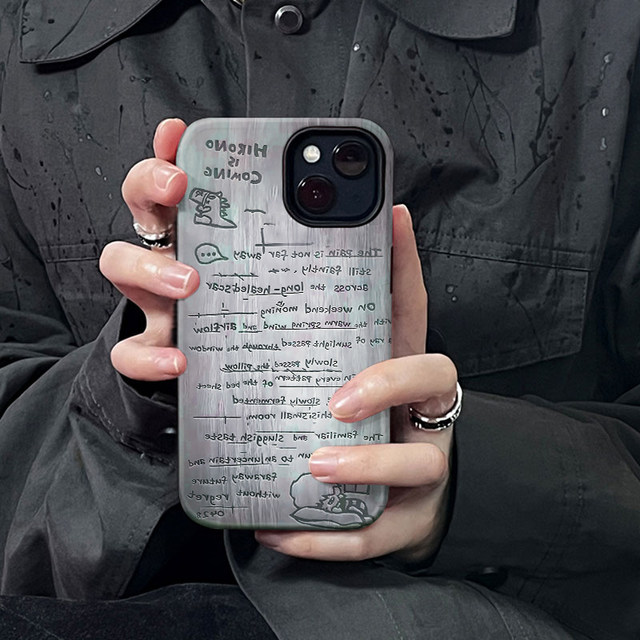 HIRONO
IS
COMING
The pain is not far away
still faintly
across the long-healed scar
On weekend moning
with the warm spring wind and airflow
ay of sunlight tassed through the window
slowly passed the pillow
in every pattern of the bed sheet
slowly fermented
this small room.
The familiar and sluggish taste
to an uncertain and
faraway future
without regret